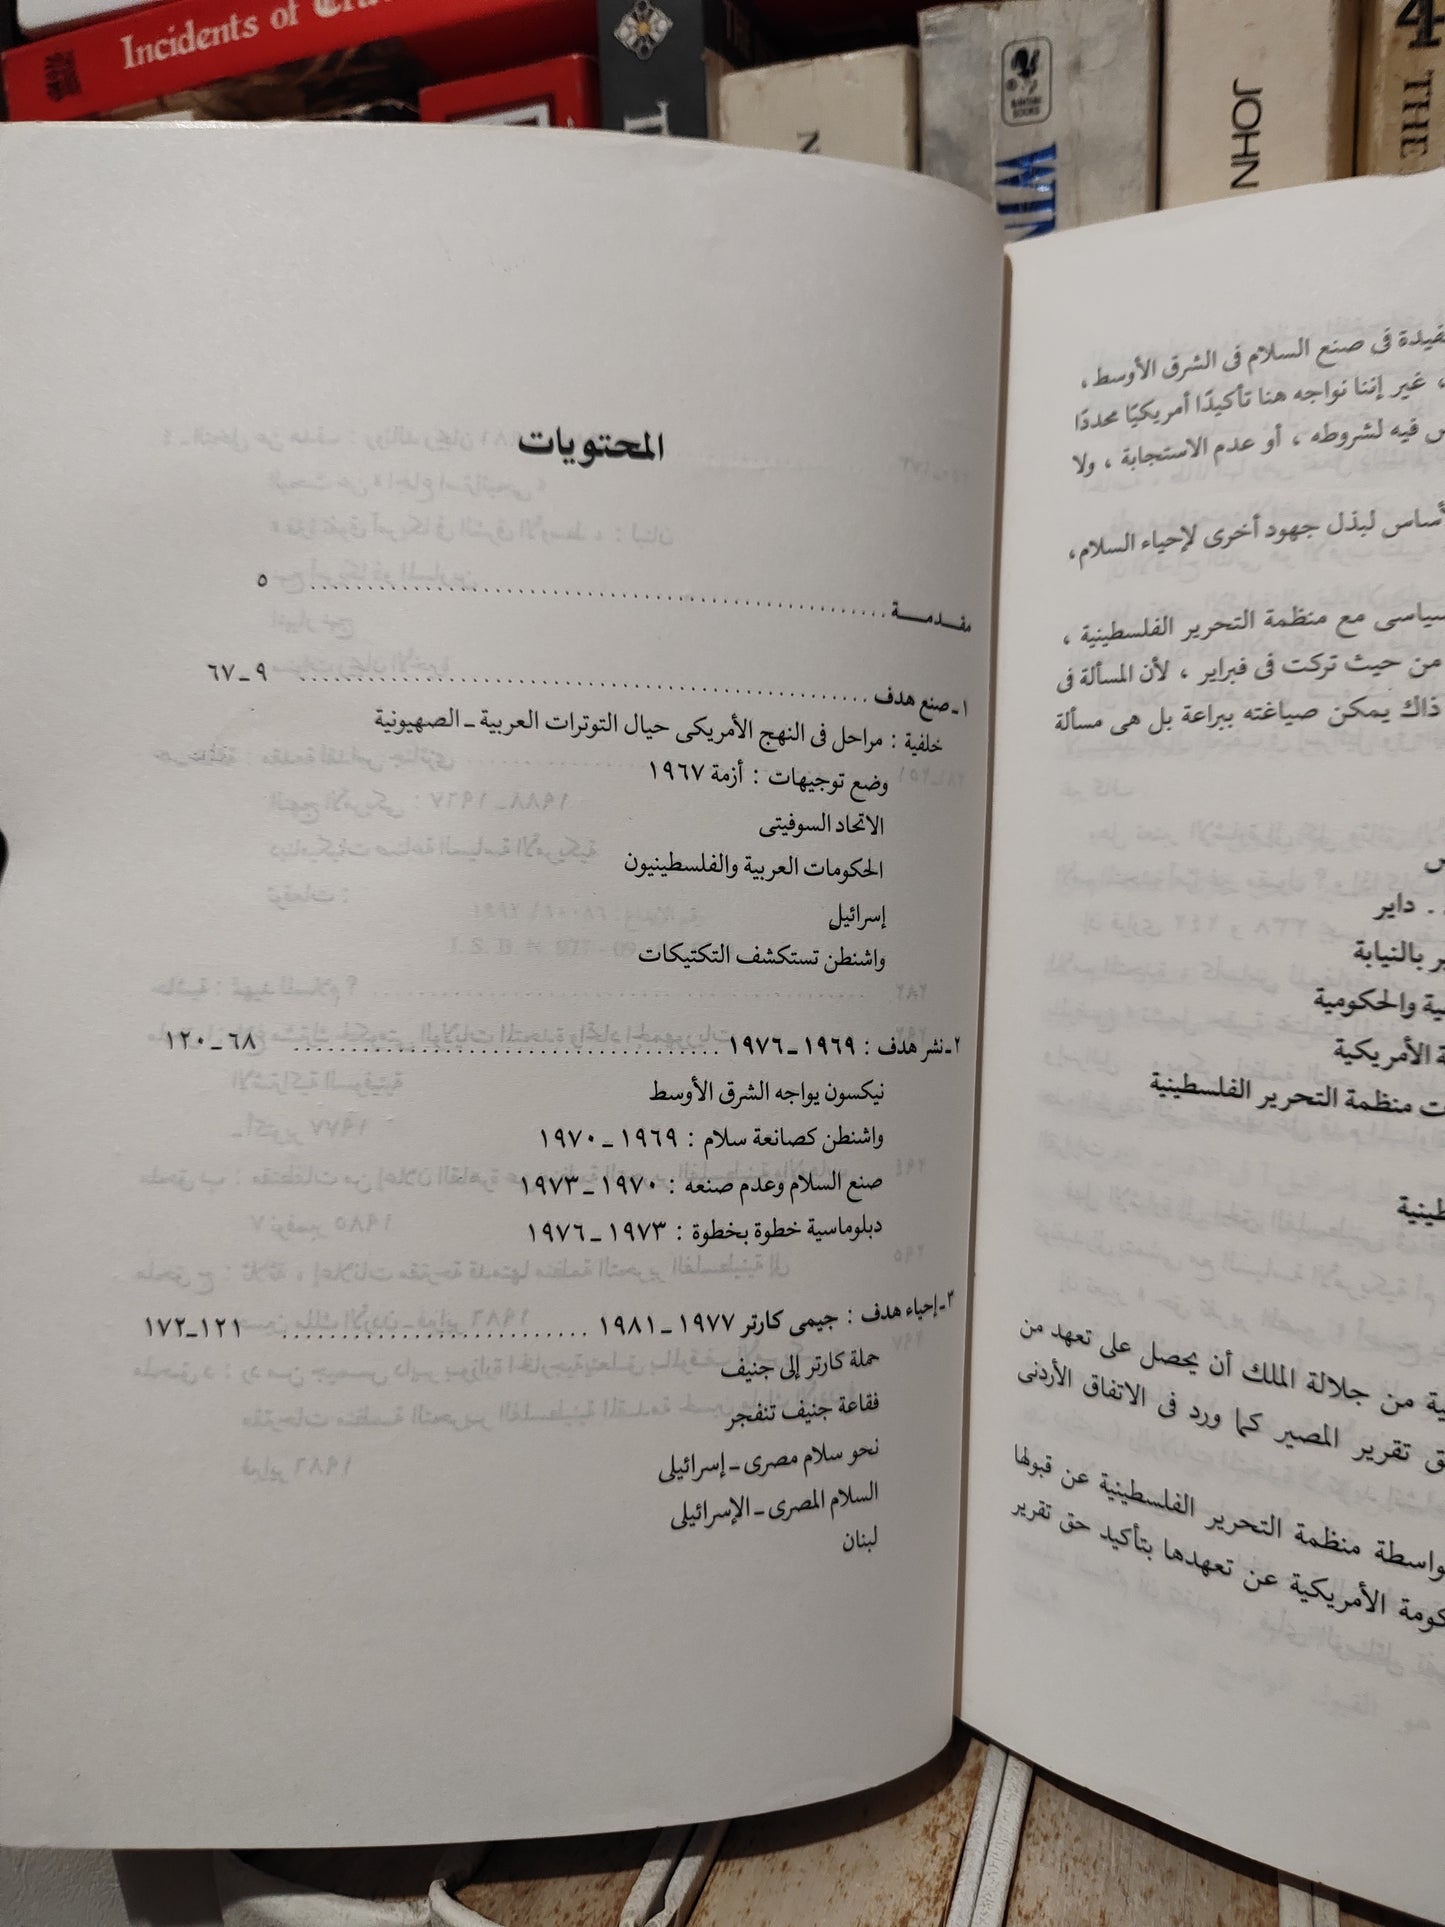 Incidents of
JOHN
THE
BANTAM BOOKS
WIN
المحتويات
مقـدمـــة ........ ٥
١ـ صنع هدف ........ ٩ـ٦٧
خلفية : مراحل فى النهج الأمريكى حيال التوترات العربية ـ الصهيونية
وضع توجيهات : أزمة ١٩٦٧
الاتحاد السوفيتى
الحكومات العربية والفلسطينيون
إسرائيل
واشنطن تستكشف التكتيكات
٢ـ نشر هدف : ١٩٦٩ـ١٩٧٦ ........ ٦٨ـ١٢٠
نيكسون يواجه الشرق الأوسط
واشنطن كصانعة سلام : ١٩٦٩ ـ ١٩٧٠
صنع السلام وعدم صنعه : ١٩٧٠ ـ ١٩٧٣
دبلوماسية خطوة بخطوة : ١٩٧٣ ـ ١٩٧٦
٣ـ إحياء هدف : جيمى كارتر ١٩٧٧ ـ ١٩٨١ ........ ١٢١ـ١٧٢
حملة كارتر إلى جنيف
فقاعة جنيف تنفجر
نحو سلام مصرى ـ إسرائيلى
السلام المصرى ـ الإسرائيلى
لبنان
فى صنع السلام فى الشرق الأوسط ،
، غير إننا نواجه هنا تأكيدًا أمريكيًا محددًا
فيه لشروطه ، أو عدم الاستجابة ، ولا
لبذل جهود أخرى لإحياء السلام،
مع منظمة التحرير الفلسطينية ،
من حيث تركت فى فبراير ، لأن المسألة فى
ذاك يمكن صياغته ببراعة بل هى مسألة
. داير
بالنيابة
والحكومية
الأمريكية
منظمة التحرير الفلسطينية
من جلالة الملك أن يحصل على تعهد من
تقرير المصير كما ورد فى الاتفاق الأردنى
منظمة التحرير الفلسطينية عن قبولها
الأمريكية عن تعهدها بتأكيد حق تقرير